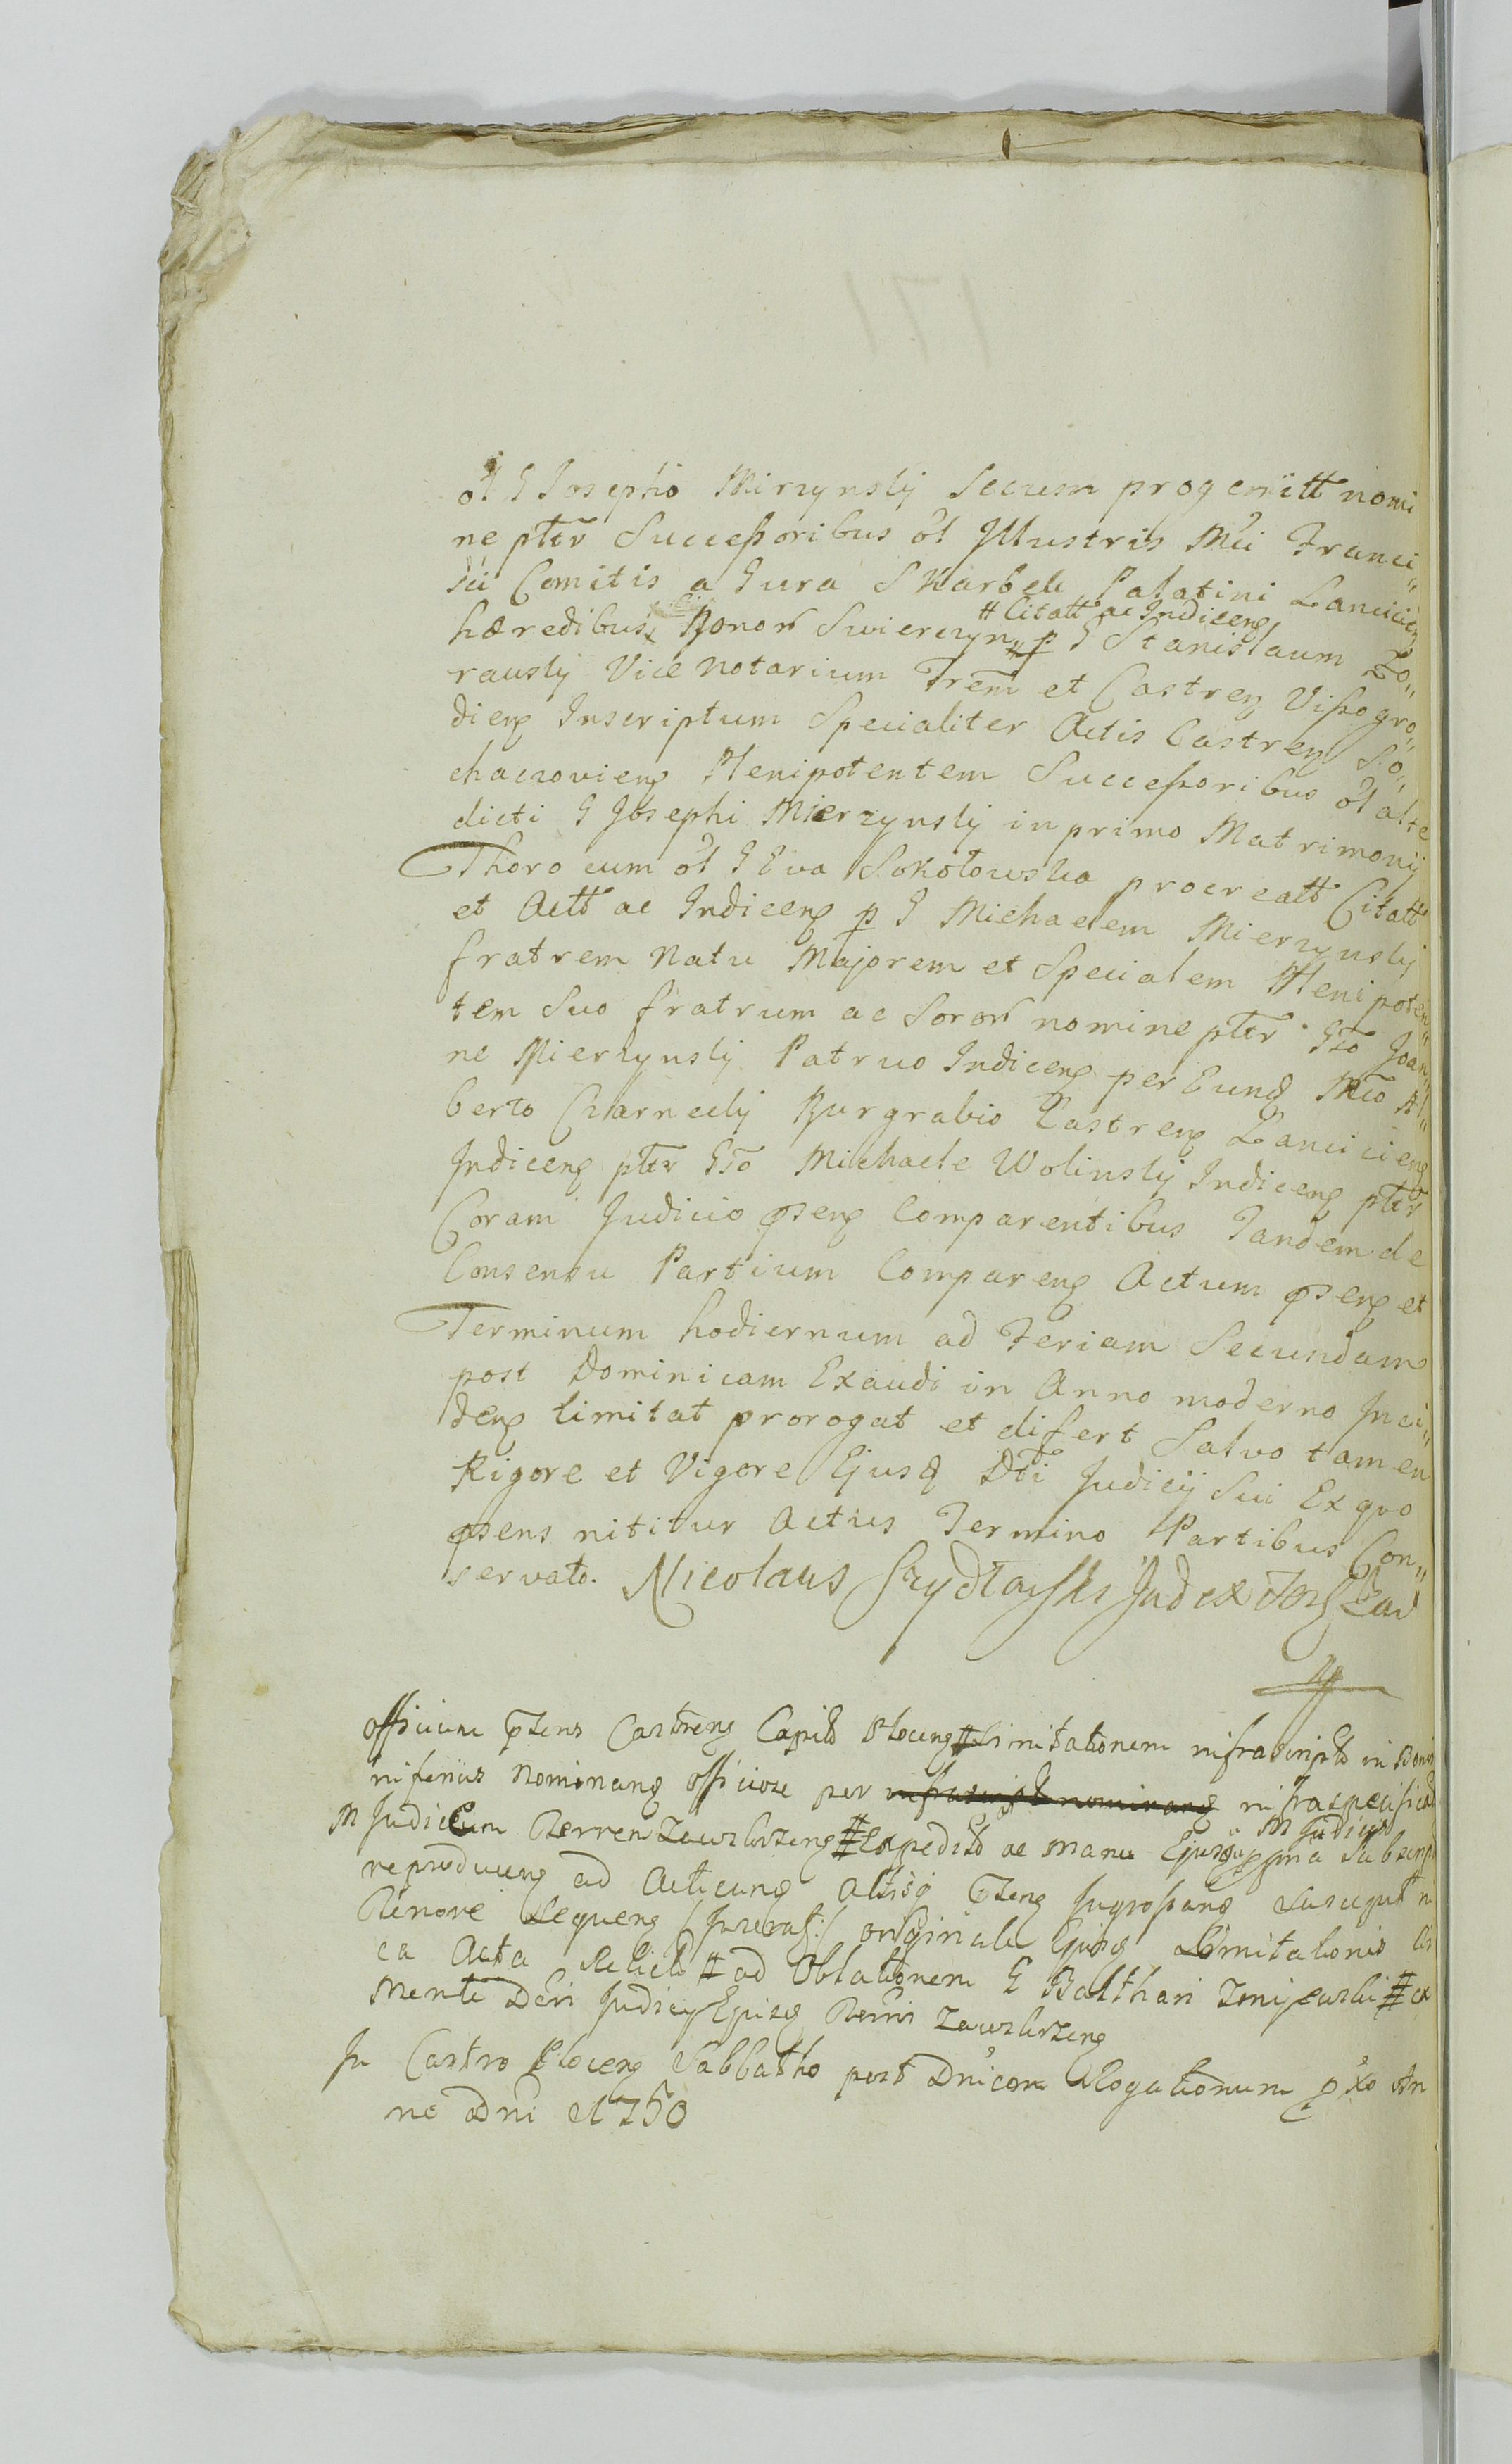 ol G Josepho Mirzynsky Secum progenitt nomi
ne pltr Successoribus ol Jllustris Mci Franci„
sci Comitis a Gura Skarbek Palatini Lancicien
hæredibus Bonor Swierczyn # p G Stanislaum Zo„
# Citatt ac Indicens
rausky Vice Notarium Trem et Castren Vissogro„
diens Inscriptum Specialiter Actis Castren So„
chazoviens Plenipotentem Successoribus ol alte
dicti G Josephi Mierzynsky in primo Matrimonij
Thoro cum ol G Eva Sokołowska procreatt Citatt
et Actt ac Indicens p G Michaelem Mierzynsky
fratrem Natu Majorem et Specialem Plenipoten„
tem Suo fratrum ac Soror nomine pltr Gso Joan„
ne Mierzynsky Patruo Indicens per Eund Mco Al„
berto Czarnecky Burgrabio Castrens Lanciciens
Indicens pltr Gso Michaele Wolinsky Indicens pltr
Coram Judicio psens Comparentibus Tandem de
Consensu Partium Comparens Actum psens et
Terminum hodiernum ad Feriam Secundam
post Dominicam Exaudi in Anno moderno Inci„
dens limitat prorogat et difert Salvo tamen
Rigore et Vigore Ejusd Dti Judicij Sui Ex quo
psens nititur Actus Termino Partibus Con„
servato. Nicolaus Szydłowski Judex
Officium psens Castrens Capit Plocens # Limitationem infrascript in Bonis
inferius Nominand officiose per infrascript nominand infraspecificat
M Judicem Terren Zawskrzens # expedit ac manu Ejusd M Judicis ppria Subscript
reproducens ad Acticand Actisq psens Ingrossand Suscepit
Tenore Sequens /Inserat:/ originale Ejusd Limitationis
ea Acta Relict # ad Oblationem G Balthari # ex
Mente Dcri Judicij Ejusd Terris Zawskrzens
In Castro Plocens Sabbatho post Dnicam Rogationum pxo An
no Dni 1750